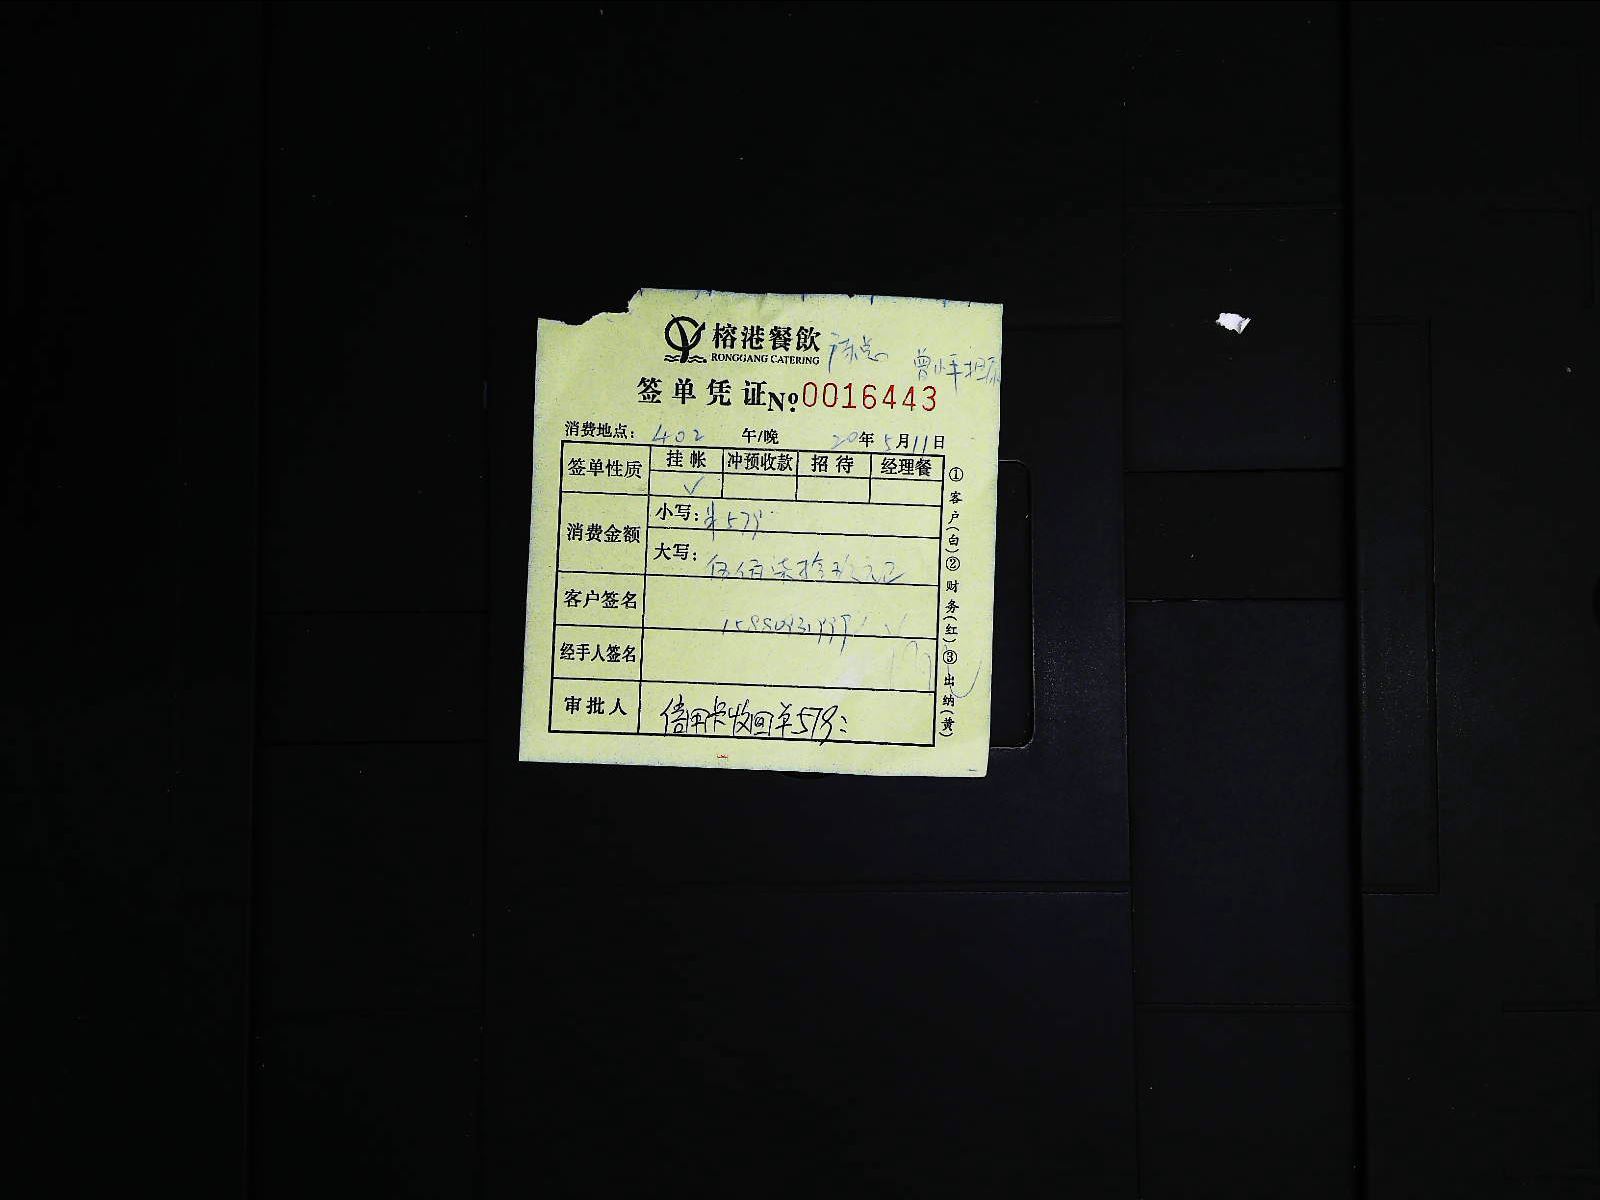 榕港餐飲
RONGGANG CATERING
陈总 曾小平担保
签单凭证 No. 0016443
消费地点: 402 午/晚 20年5月11日
签单性质 挂帐 冲预收款 招待 经理餐
√
消费金额 小写: ¥579
大写: 伍佰柒拾玖元正
客户签名
经手人签名
审批人 信用卡收回单579:
①客户(白)②财务(红)③出纳(黄)